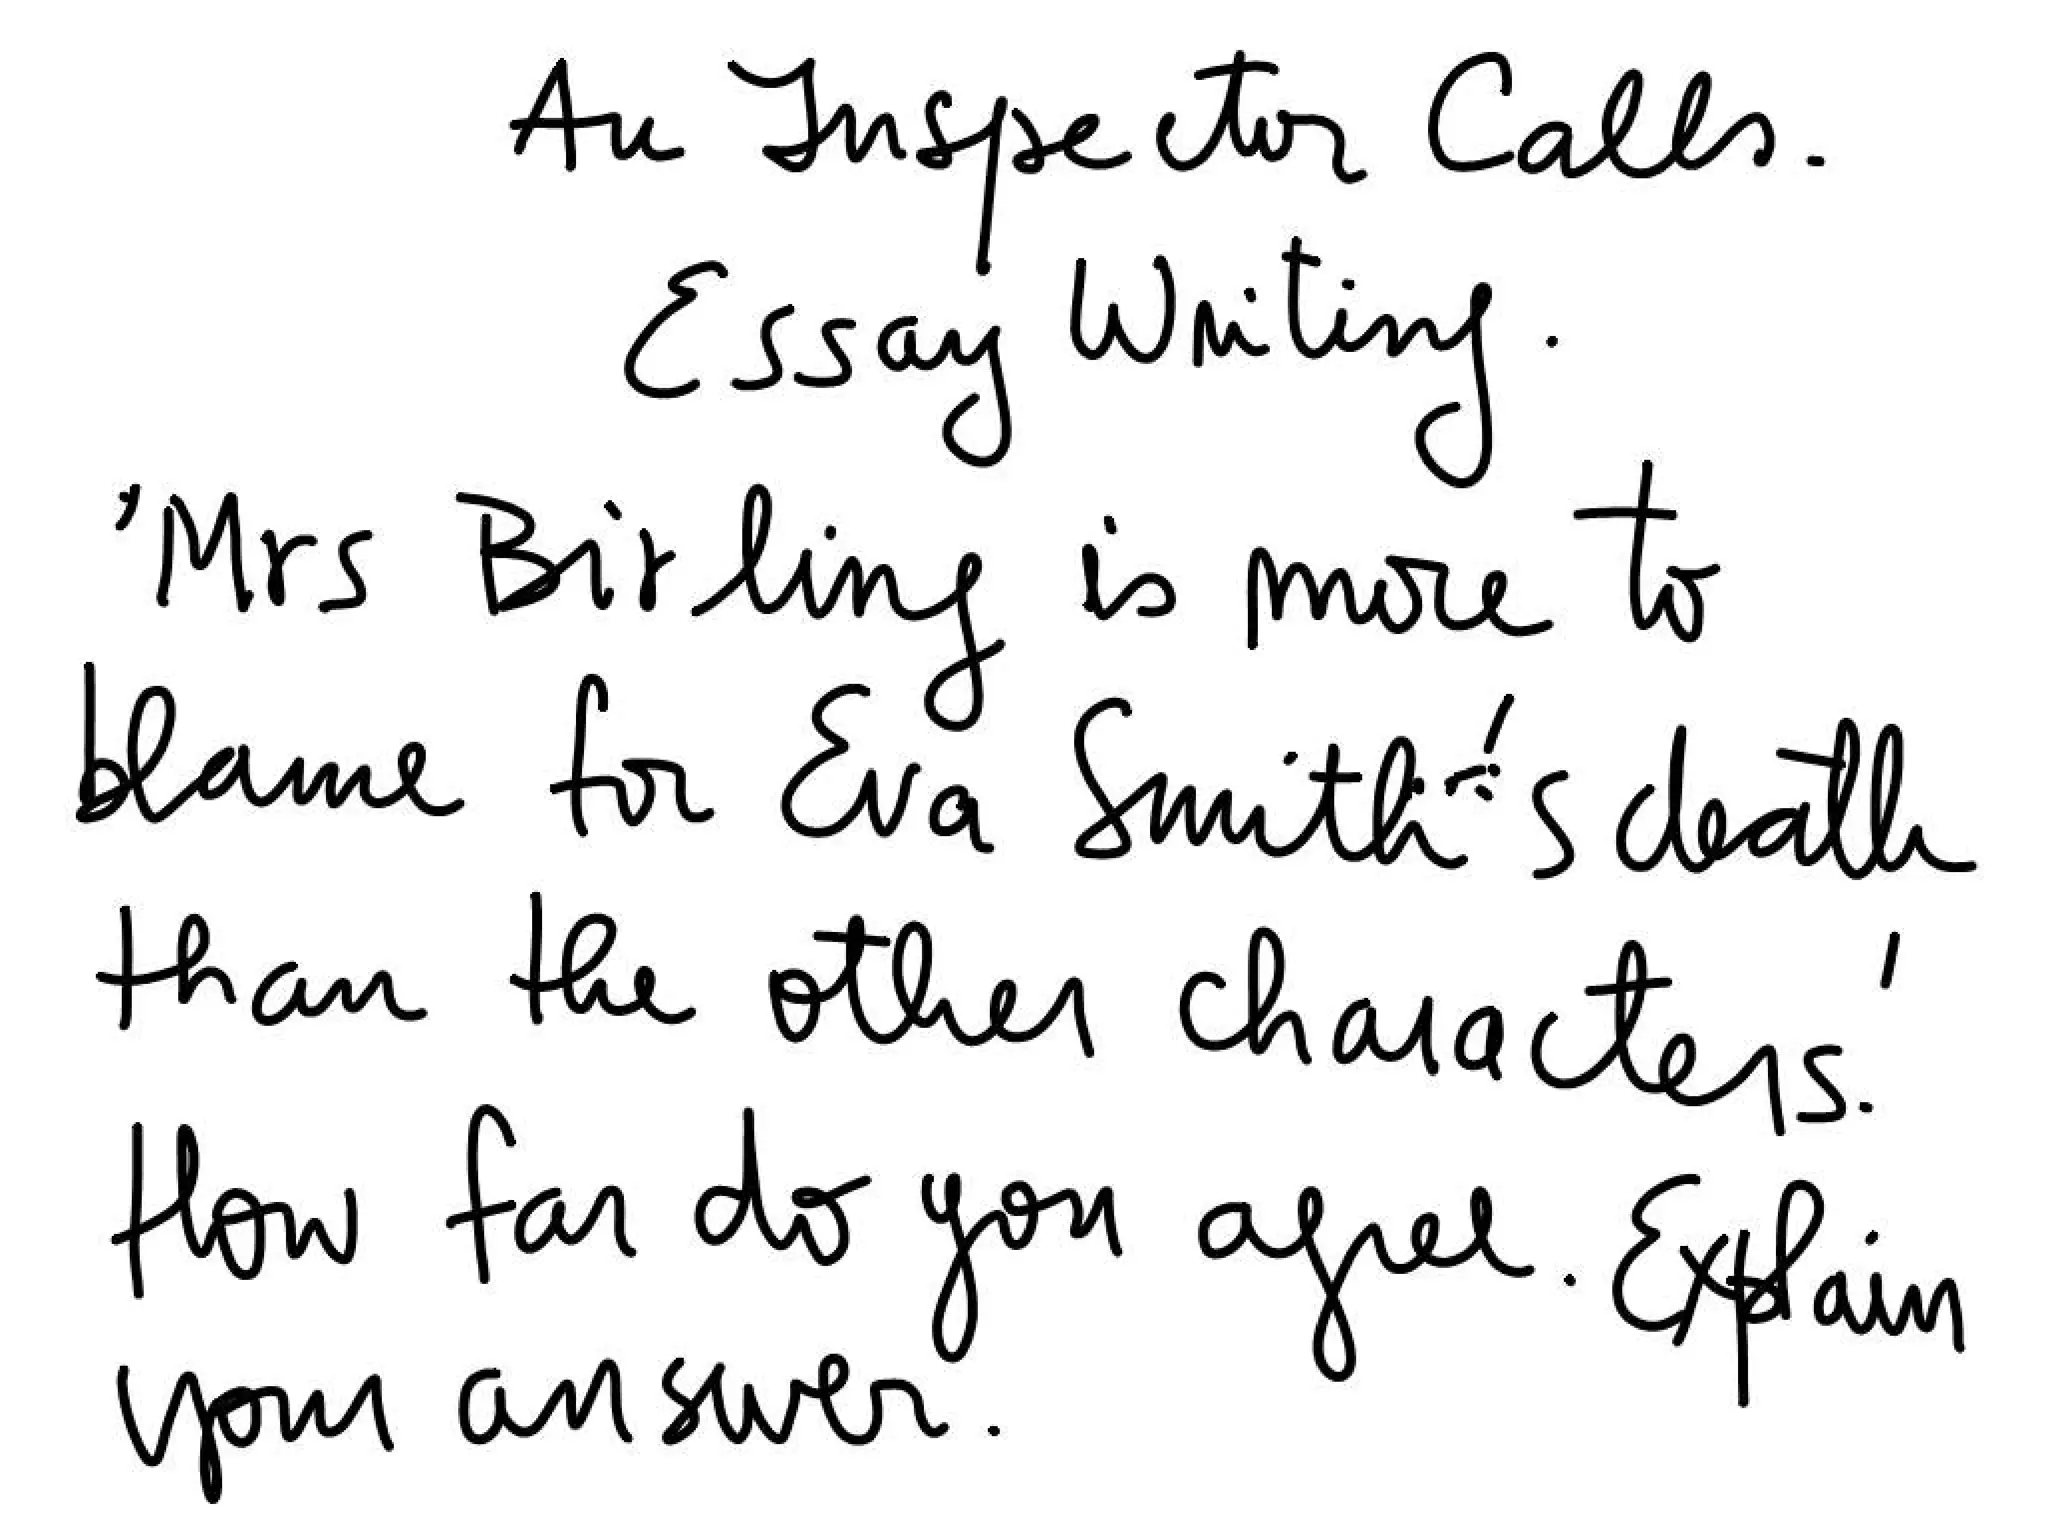 An Inspector Calls.
Essay Writing.
'Mrs Birling is more to
blame for Eva Smith's death
than the other characters.'
How far do you agree. Explain
your answer.